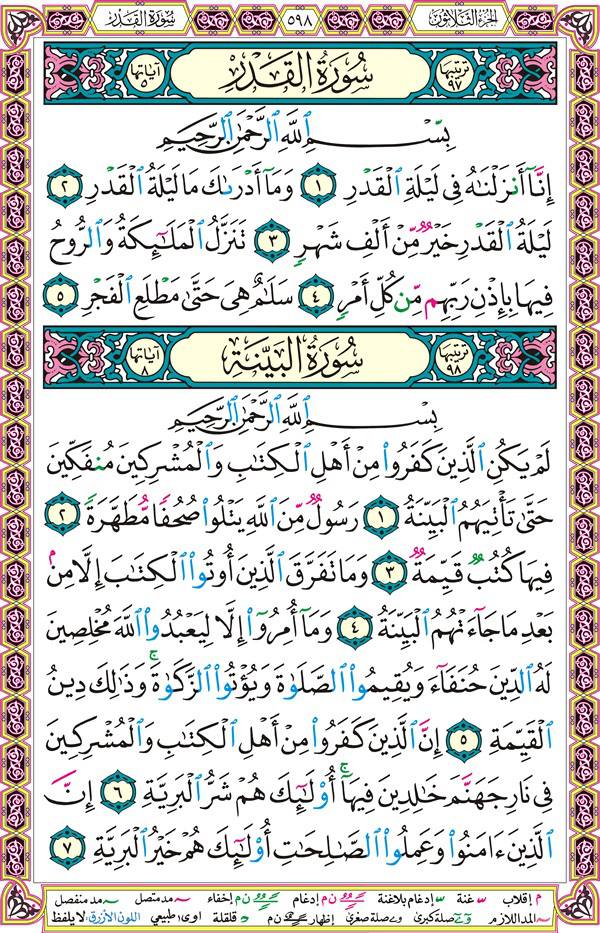 الجزء الثلاثون ٥٩٨ سورة القدر
ترتيبها ٩٧ سُورَةُ الْقَدْرِ آياتها ٥
بِسْمِ اللَّهِ الرَّحْمَٰنِ الرَّحِيمِ
إِنَّآ أَنزَلْنَٰهُ فِى لَيْلَةِ ٱلْقَدْرِ ١ وَمَآ أَدْرَىٰكَ مَا لَيْلَةُ ٱلْقَدْرِ ٢
لَيْلَةُ ٱلْقَدْرِ خَيْرٌ مِّنْ أَلْفِ شَهْرٍ ٣ تَنَزَّلُ ٱلْمَلَٰٓئِكَةُ وَٱلرُّوحُ
فِيهَا بِإِذْنِ رَبِّهِم مِّن كُلِّ أَمْرٍ ٤ سَلَٰمٌ هِىَ حَتَّىٰ مَطْلَعِ ٱلْفَجْرِ ٥
ترتيبها ٩٨ سُورَةُ الْبَيِّنَةِ آياتها ٨
بِسْمِ اللَّهِ الرَّحْمَٰنِ الرَّحِيمِ
لَمْ يَكُنِ ٱلَّذِينَ كَفَرُوا۟ مِنْ أَهْلِ ٱلْكِتَٰبِ وَٱلْمُشْرِكِينَ مُنفَكِّينَ
حَتَّىٰ تَأْتِيَهُمُ ٱلْبَيِّنَةُ ١ رَسُولٌ مِّنَ ٱللَّهِ يَتْلُوا۟ صُحُفًا مُّطَهَّرَةً ٢
فِيهَا كُتُبٌ قَيِّمَةٌ ٣ وَمَا تَفَرَّقَ ٱلَّذِينَ أُوتُوا۟ ٱلْكِتَٰبَ إِلَّا مِنۢ
بَعْدِ مَا جَآءَتْهُمُ ٱلْبَيِّنَةُ ٤ وَمَآ أُمِرُوٓا۟ إِلَّا لِيَعْبُدُوا۟ ٱللَّهَ مُخْلِصِينَ
لَهُ ٱلدِّينَ حُنَفَآءَ وَيُقِيمُوا۟ ٱلصَّلَوٰةَ وَيُؤْتُوا۟ ٱلزَّكَوٰةَ ۚ وَذَٰلِكَ دِينُ
ٱلْقَيِّمَةِ ٥ إِنَّ ٱلَّذِينَ كَفَرُوا۟ مِنْ أَهْلِ ٱلْكِتَٰبِ وَٱلْمُشْرِكِينَ
فِى نَارِ جَهَنَّمَ خَٰلِدِينَ فِيهَآ ۚ أُو۟لَٰٓئِكَ هُمْ شَرُّ ٱلْبَرِيَّةِ ٦ إِنَّ
ٱلَّذِينَ ءَامَنُوا۟ وَعَمِلُوا۟ ٱلصَّٰلِحَٰتِ أُو۟لَٰٓئِكَ هُمْ خَيْرُ ٱلْبَرِيَّةِ ٧
م إقلاب غنة إدغام بلاغنة ن م إدغام ن م إخفاء مد متصل مد منفصل
المد اللازم صلة كبرى صلة صغرى إظهار ن م قلقلة اوى: طبيعي اللون الأزرق: لا يلفظ